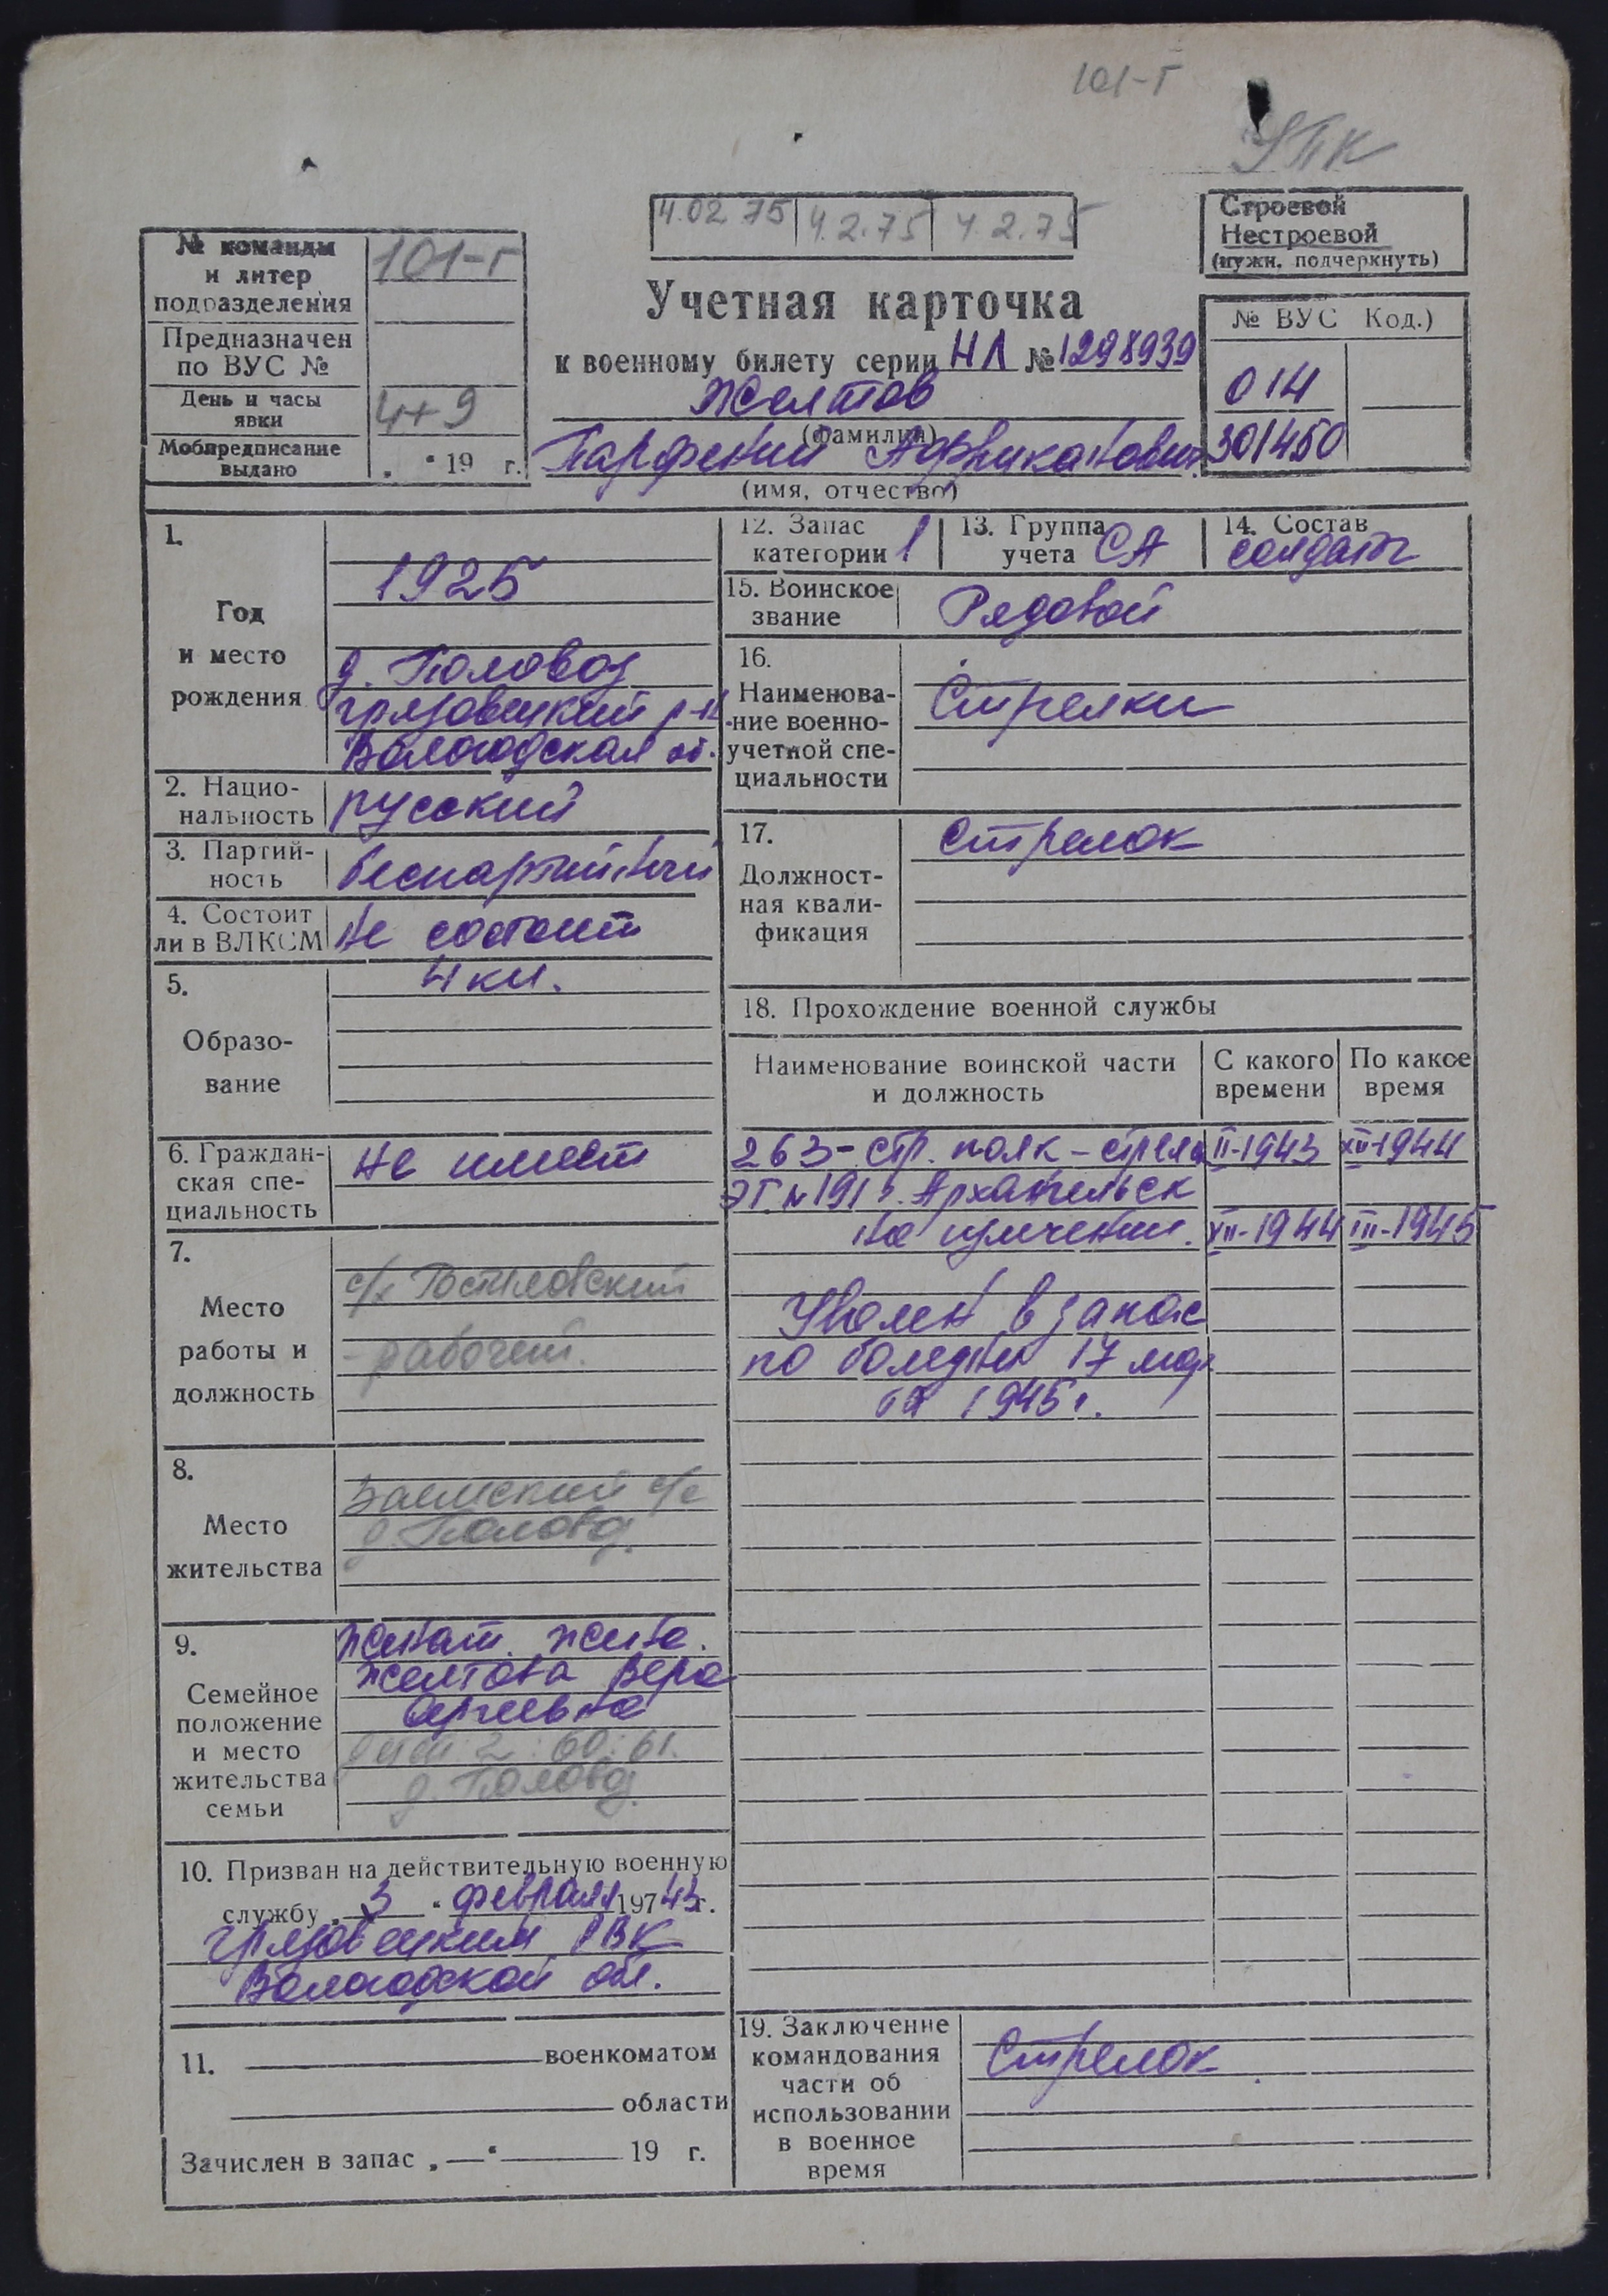 101-Г
УПК
4.02 75 | 4.2.75 | 4.2.75
Строевой
Нестроевой
(нужн. подчеркнуть)
№ команды
и литер
подразделения
101-Г
Предназначен
по ВУС №
День и часы
явки
4+9
Мобпредписание
выдано
„ “ 19 г.
Учетная карточка
к военному билету серии НЛ № 1298939
Желтов
(фамилия)
Парфений Африканович
(имя, отчество)
№ ВУС Код.)
014
301450
1.
Год
и место
рождения
1925
д. Половоз
Грязовецкий р-н
Вологодская об.
2. Нацио-
нальность
русский
3. Партий-
ность
беспартийный
4. Состоит
ли в ВЛКСМ
не состоит
5.
Образо-
вание
4 кл.
6. Граждан-
ская спе-
циальность
не имеет
7.
Место
работы и
должность
с/х Ростиловский
- рабочий.
8.
Место
жительства
Заемский с/с
д. Половоз.
9.
Семейное
положение
и место
жительства
семьи
Женат. жена.
Желтова Вера
Сергеевна
детей: 2: 60: 61.
д. Половоз.
10. Призван на действительную военную
службу „ 3 “ февраля 197 43 г.
Грязовецким РВК
Вологодской обл.
11. военкоматом
области
Зачислен в запас „ — “ 19 г.
12. Запас
категории 1
13. Группа
учета СА
14. Состав
солдаты
15. Воинское
звание
Рядовой
16.
Наименова-
ние военно-
учетной спе-
циальности
Стрелки
17.
Должност-
ная квали-
фикация
Стрелок
18. Прохождение военной службы
Наименование воинской части
и должность
С какого
времени
По какое
время
263-стр. полк - стрелок II-1943 XII-1944
ЭГ. № 191 г. Архангельск
на излечении. XII-1944 III-1945
Уволен в запас
по болезни 17 мар
та 1945 г.
19. Заключение
командования
части об
использовании
в военное
время
Стрелок